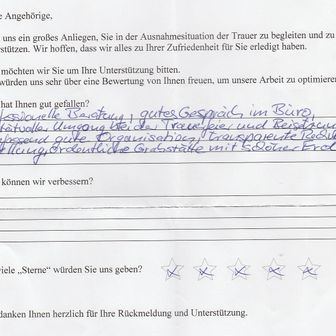 e Angehörige,
uns ein großes Anliegen, Sie in der Ausnahmesituation der Trauer zu begleiten und zu
stützen. Wir hoffen, dass wir alles zu Ihrer Zufriedenheit für Sie erledigt haben.
möchten wir Sie um Ihre Unterstützung bitten.
würden uns sehr über eine Bewertung von Ihnen freuen, um unsere Arbeit zu optimieren
hat Ihnen gut gefallen?
fessionelle Beratung, gutes Gespräch im Büro,
voller Umgang bei der Trauerfeier und Beisetzung
passend gute Organisation, transparente
ordentliche Grabstätte mit schöner Erd
können wir verbessern?
viele „Sterne“ würden Sie uns geben?
danken Ihnen herzlich für Ihre Rückmeldung und Unterstützung.